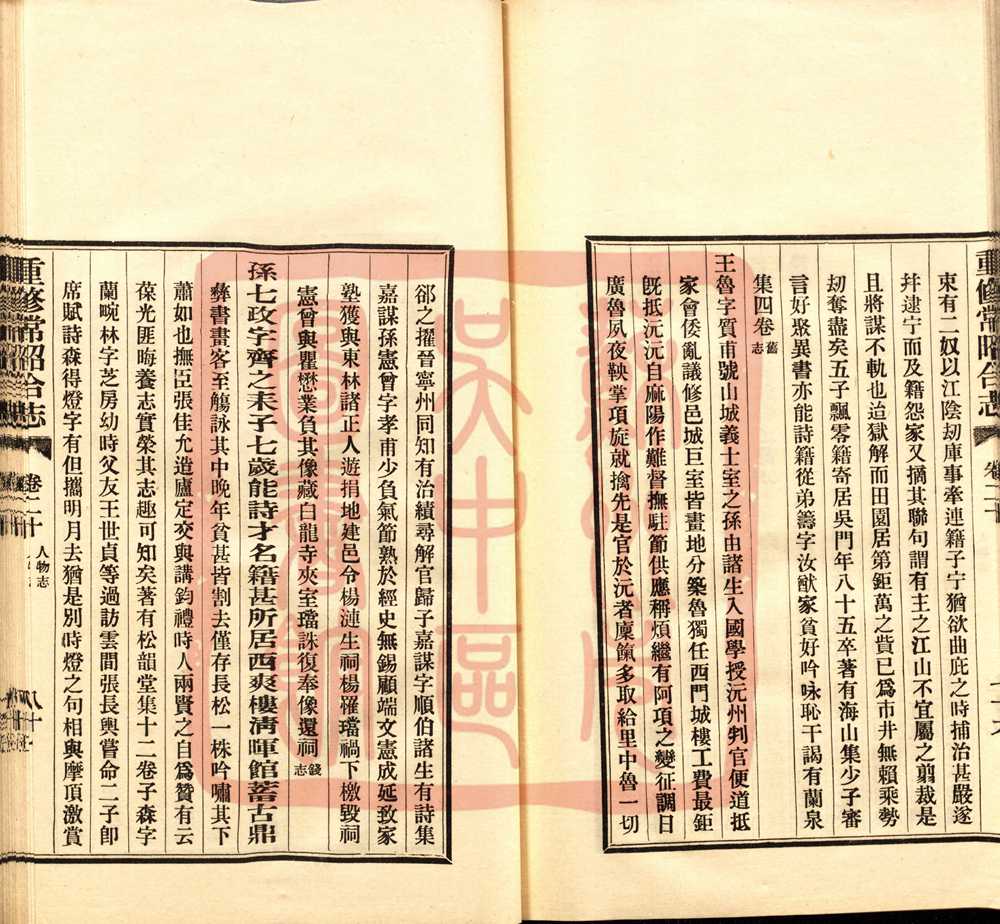 重修常昭合志
卷二十
東有二奴以江陰刧庫事牽連籍子宁猶欲曲庇之時捕治甚嚴遂
幷逮宁而及籍怨家又摘其聯句謂有主之江山不宜屬之剪裁是
且將謀不軌也迨獄解而田園居第鉅萬之貲已爲市井無賴乘勢
刧奪盡矣五子飄零籍寄居吳門年八十五卒著有海山集少子審
言好聚異書亦能詩籍從弟籌字汝猷家貧好吟咏恥干謁有蘭泉
集四卷舊志
王魯字質甫號山城義士室之孫由諸生入國學授沅州判官便道抵
家會倭亂議修邑城巨室皆畫地分築魯獨任西門城樓工費最鉅
旣抵沅沅自麻陽作難督撫駐節供應稱煩繼有阿項之變征調日
廣魯夙夜鞅掌項旋就擒先是官於沅者廩餼多取給里中魯一切
郤之擢晉寧州同知有治績尋解官歸子嘉謀字順伯諸生有詩集
嘉謀孫憲曾字孝甫少負氣節熟於經史無錫顧端文憲成延致家
塾獲與東林諸正人遊捐地建邑令楊漣生祠楊罹璫禍下檄毀祠
憲曾與瞿懋業負其像藏白龍寺夾室璫誅復奉像還祠錢志
孫七政字齊之耒子七歲能詩才名籍甚所居西爽樓淸暉館蓄古鼎
彝書畫客至觴詠其中晚年貧甚皆割去僅存長松一株吟嘯其下
蕭如也撫臣張佳允造廬定交與講鈞禮時人兩賢之自爲贊有云
葆光匪晦養志實榮其志趣可知矣著有松韻堂集十二卷子森字
蘭畹林字芝房幼時父友王世貞等過訪雲間張長輿嘗命二子卽
席賦詩森得燈字有但攜明月去猶是別時燈之句相與摩頂激賞
重修常昭合志
卷二十
人物志